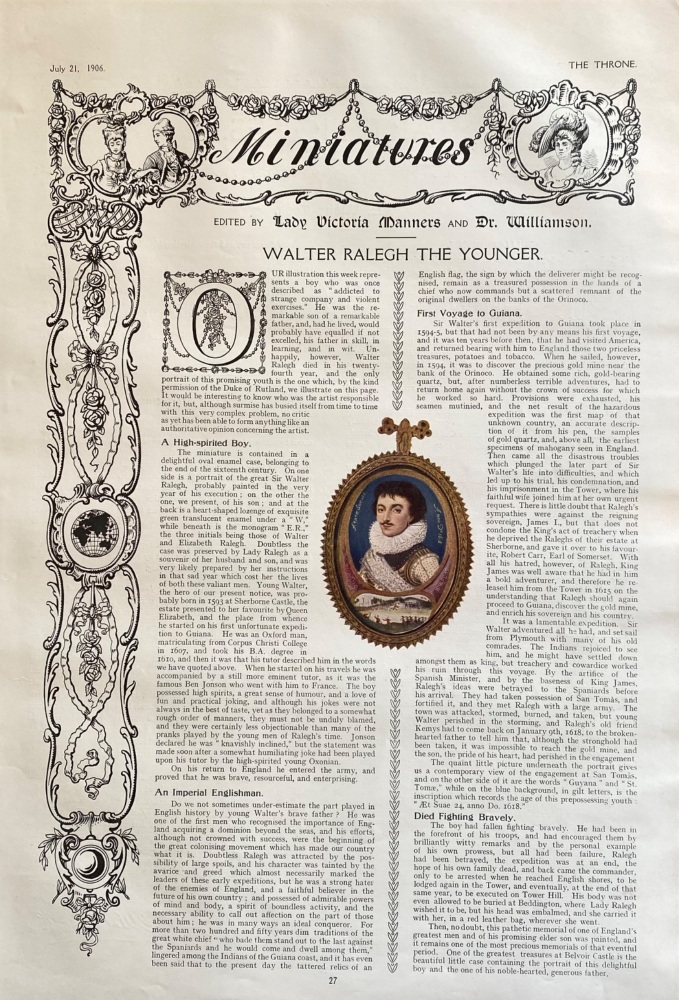 July 21, 1906.
THE THRONE.
Miniatures
EDITED BY Lady Victoria Manners AND Dr. Williamson.
WALTER RALEGH THE YOUNGER.
OUR illustration this week repre-
sents a boy who was once
described as "addicted to
strange company and violent
exercises." He was the re-
markable son of a remarkable
father, and, had he lived, would
probably have equalled if not
excelled, his father in skill, in
learning, and in wit. Un-
happily, however, Walter
Ralegh died in his twenty-
fourth year, and the only
portrait of this promising youth is the one which, by the kind
permission of the Duke of Rutland, we illustrate on this page.
It would be interesting to know who was the artist responsible
for it, but, although surmise has busied itself from time to time
with this very complex problem, no critic
as yet has been able to form anything like an
authoritative opinion concerning the artist.
A High-spirited Boy.
The miniature is contained in a
delightful oval enamel case, belonging to
the end of the sixteenth century. On one
side is a portrait of the great Sir Walter
Ralegh, probably painted in the very
year of his execution; on the other the
one, we present, of his son; and at the
back is a heart-shaped lozenge of exquisite
green translucent enamel under a "W,"
while beneath is the monogram "E.R.,"
the three initials being those of Walter
and Elizabeth Ralegh. Doubtless the
case was preserved by Lady Ralegh as a
souvenir of her husband and son, and was
very likely prepared by her instructions
in that sad year which cost her the lives
of both these valiant men. Young Walter,
the hero of our present notice, was pro-
bably born in 1593 at Sherborne Castle, the
estate presented to her favourite by Queen
Elizabeth, and the place from whence
he started on his first unfortunate expedi-
tion to Guiana. He was an Oxford man,
matriculating from Corpus Christi College
in 1607, and took his B.A. degree in
1610, and then it was that his tutor described him in the words
we have quoted above. When he started on his travels he was
accompanied by a still more eminent tutor, as it was the
famous Ben Jonson who went with him to France. The boy
possessed high spirits, a great sense of humour, and a love of
fun and practical joking, and although his jokes were not
always in the best of taste, yet as they belonged to a somewhat
rough order of manners, they must not be unduly blamed,
and they were certainly less objectionable than many of the
pranks played by the young men of Ralegh's time. Jonson
declared he was "knavishly inclined," but the statement was
made soon after a somewhat humiliating joke had been played
upon his tutor by the high-spirited young Oxonian.
On his return to England he entered the army, and
proved that he was brave, resourceful, and enterprising.
An Imperial Englishman.
Do we not sometimes under-estimate the part played in
English history by young Walter's brave father? He was
one of the first men who recognised the importance of Eng-
land acquiring a dominion beyond the seas, and his efforts,
although not crowned with success, were the beginning of
the great colonising movement which has made our country
what it is. Doubtless Ralegh was attracted by the pos-
sibility of large spoils, and his character was tainted by the
avarice and greed which almost necessarily marked the
leaders of these early expeditions, but he was a strong hater
of the enemies of England, and a faithful believer in the
future of his own country; and possessed of admirable powers
of mind and body, a spirit of boundless activity, and the
necessary ability to call out affection on the part of those
about him; he was in many ways an ideal conqueror. For
more than two hundred and fifty years dim traditions of the
great white chief "who bade them stand out to the last against
the Spaniards and he would come and dwell among them,"
lingered among the Indians of the Guiana coast, and it has even
been said that to the present day the tattered relics of an
English flag, the sign by which the deliverer might be recog-
nised, remain as a treasured possession in the hands of a
chief who now commands but a scattered remnant of the
original dwellers on the banks of the Orinoco.
First Voyage to Guiana.
Sir Walter's first expedition to Guiana took place in
1594-5, but that had not been by any means his first voyage,
and it was ten years before then, that he had visited America,
and returned bearing with him to England those two priceless
treasures, potatoes and tobacco. When he sailed, however,
in 1594, it was to discover the precious gold mine near the
bank of the Orinoco. He obtained some rich, gold-bearing
quartz, but, after numberless terrible adventures, had to
return home again without the crown of success for which
he worked so hard. Provisions were exhausted, his
seamen mutinied, and the net result of the hazardous
expedition was the first map of that
unknown country, an accurate descrip-
tion of it from his pen, the samples
of gold quartz, and, above all, the earliest
specimens of mahogany seen in England.
Then came all the disastrous troubles
which plunged the later part of Sir
Walter's life into difficulties, and which
led up to his trial, his condemnation, and
his imprisonment in the Tower, where his
faithful wife joined him at her own urgent
request. There is little doubt that Ralegh's
sympathies were against the reigning
sovereign, James I., but that does not
condone the King's act of treachery when
he deprived the Raleghs of their estate at
Sherborne, and gave it over to his favour-
ite, Robert Carr, Earl of Somerset. With
all his hatred, however, of Ralegh, King
James was well aware that he had in him
a bold adventurer, and therefore he re-
leased him from the Tower in 1615 on the
understanding that Ralegh should again
proceed to Guiana, discover the gold mine,
and enrich his sovereign and his country.
It was a lamentable expedition. Sir
Walter adventured all he had, and set sail
from Plymouth with many of his old
comrades. The Indians rejoiced to see
him, and he might have settled down
amongst them as king, but treachery and cowardice worked
his ruin through this voyage. By the artifice of the
Spanish Minister, and by the baseness of King James,
Ralegh's ideas were betrayed to the Spaniards before
his arrival. They had taken possession of San Tomás, and
fortified it, and they met Ralegh with a large army. The
town was attacked, stormed, burned, and taken, but young
Walter perished in the storming, and Ralegh's old friend
Kemys had to come back on January 9th, 1618, to the broken-
hearted father to tell him that, although the stronghold had
been taken, it was impossible to reach the gold mine, and
the son, the pride of his heart, had perished in the engagement
The quaint little picture underneath the portrait gives
us a contemporary view of the engagement at San Tomás,
and on the other side of it are the words "Guyana" and "St.
Tomæ," while on the blue background, in gilt letters, is the
inscription which records the age of this prepossessing youth:
"Æt Suae 24, anno Do. 1618."
Died Fighting Bravely.
The boy had fallen fighting bravely. He had been in
the forefront of his troops, and had encouraged them by
brilliantly witty remarks and by the personal example
of his own prowess, but all had been failure, Ralegh
had been betrayed, the expedition was at an end, the
hope of his own family dead, and back came the commander,
only to be arrested when he reached English shores, to be
lodged again in the Tower, and eventually, at the end of that
same year, to be executed on Tower Hill. His body was not
even allowed to be buried at Beddington, where Lady Ralegh
wished it to be, but his head was embalmed, and she carried it
with her, in a red leather bag, wherever she went.
Then, no doubt, this pathetic memorial of one of England's
greatest men and of his promising elder son was painted, and
it remains one of the most precious memorials of that eventful
period. One of the greatest treasures at Belvoir Castle is the
beautiful little case containing the portrait of this delightful
boy and the one of his noble-hearted, generous father.
27